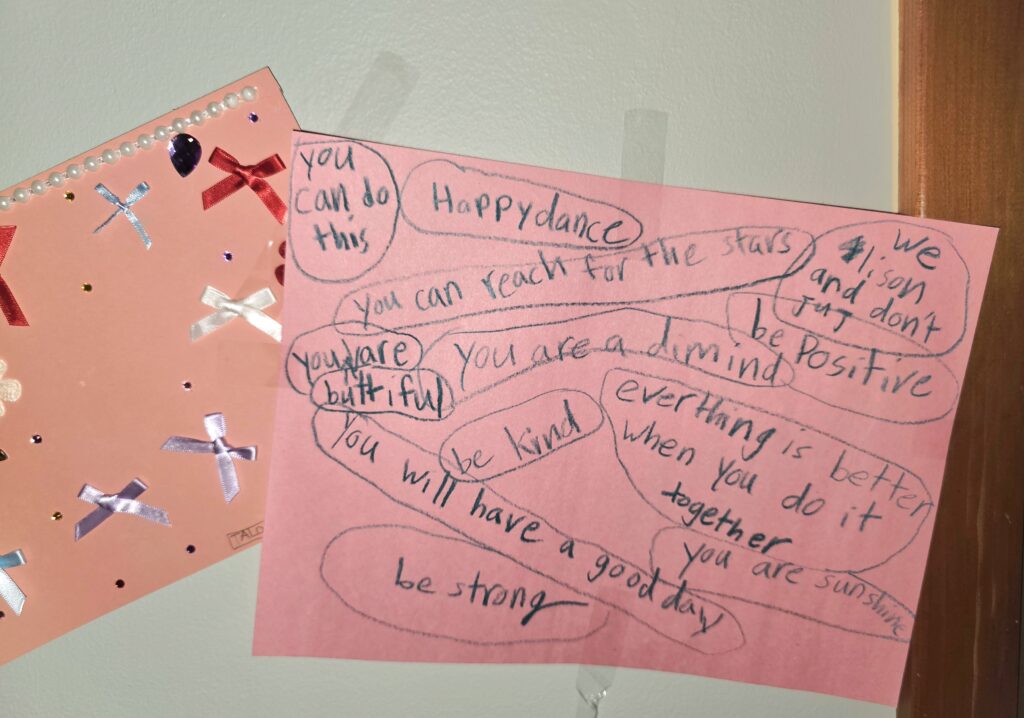 you
can do
this
Happydance
you can reach for the stars
we
lison
and don't
juj
you are
buttiful
you are a dimind
be Positive
be kind
everthing is better
when you do it
together
you will have a good day
you are sunshine
be strong